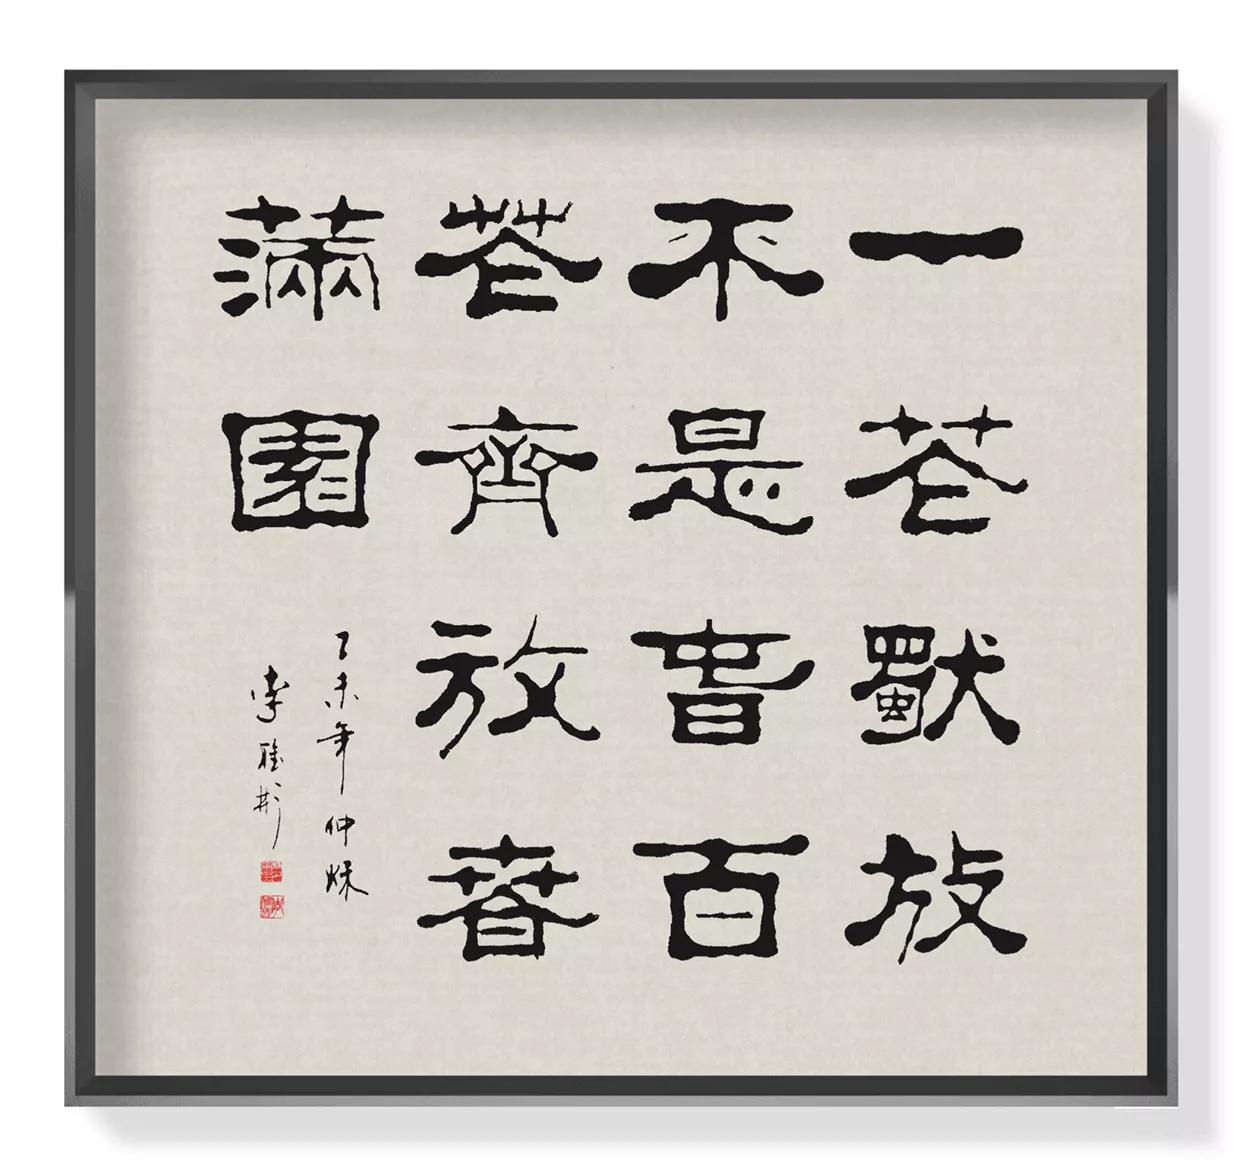 一花獨放
不是春百
花齊放春
滿園
乙未年仲秋
李彬